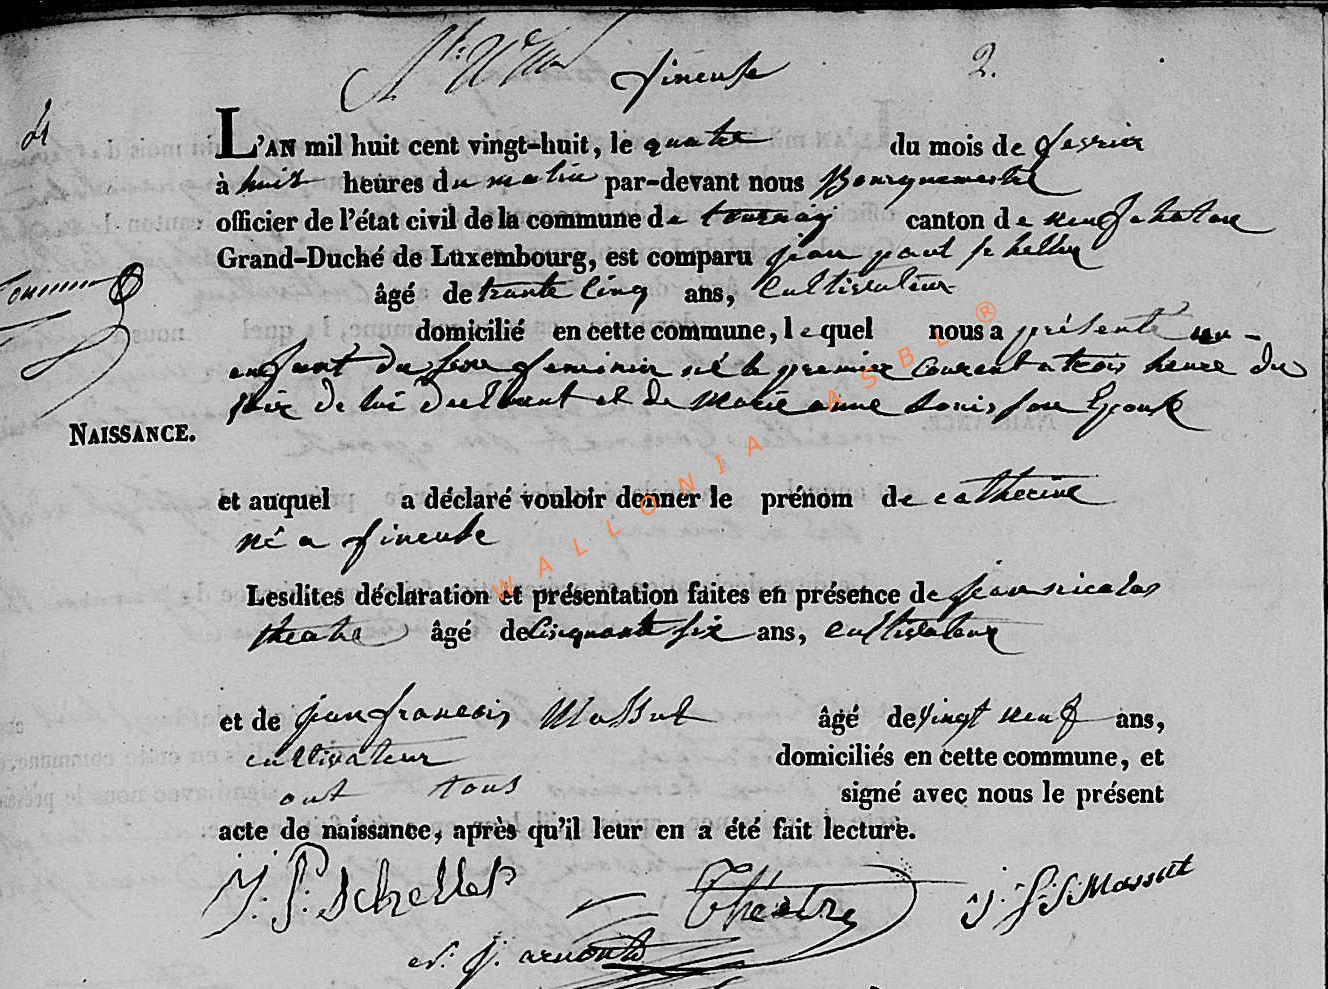 fineuse 2.
L'AN mil huit cent vingt-huit, le quatre du mois de fevrier
à huit heures du matin par-devant nous Bourguemestre
officier de l'état civil de la commune de tournay canton de neufchateau
Grand-Duché de Luxembourg, est comparu jean paul scheller
âgé de trante cinq ans, cultivateur
domicilié en cette commune, le quel nous a présenté un
enfant du sexe feminin né le premier courent a trois heure du
soir de lui declarant et de marie anne louis son Epouse
NAISSANCE.
et auquel a déclaré vouloir donner le prénom de catherine
né a fineuse
Lesdites déclaration et présentation faites en présence de jean nicolas
theatre âgé de cinquante six ans, cultivateur
et de jean francois Massut âgé de vingt neuf ans,
cultivateur domiciliés en cette commune, et
ont tous signé avec nous le présent
acte de naissance, après qu'il leur en a été fait lecture.
J: P: Scheller Théatre J: F: Massut
arnould
WALLONIA ASBL ®